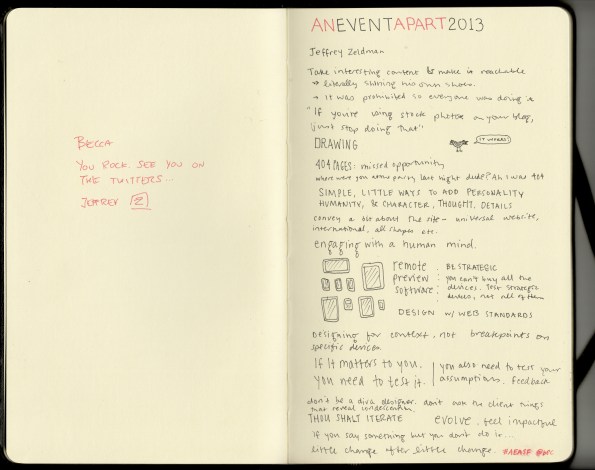 BECCA
YOU ROCK. SEE YOU ON
THE TWITTERS...
JEFFREY Z
AN EVENT APART 2013
Jeffrey Zeldman
Take interesting content & make it reachable
→ literally shining his own shoes.
→ It was prohibited so everyone was doing it
"If you're using stock photos on your blog,
just stop doing that"
DRAWING
IT WORKS!
404 PAGES: missed opportunity
where were you at the party last night dude? "Ah I was 404
SIMPLE, LITTLE WAYS TO ADD PERSONALITY
HUMANITY, & CHARACTER, THOUGHT. DETAILS
convey a lot about the site - universal website,
international, all shapes etc.
engaging with a human mind.
remote . BE STRATEGIC
preview : you can't buy all the
software: devices. Test strategic
devices, not all of them
DESIGN W/ WEB STANDARDS
Designing for context, not breakpoints on
specific devices
If it matters to you.
you need to test it.
you also need to test your
assumptions. feedback
don't be a diva designer. don't the client things
that reveal condescension.
THOU SHALT ITERATE evolve. feel impactful
if you say something but you don't do it...
little change after little change.
#AEASF